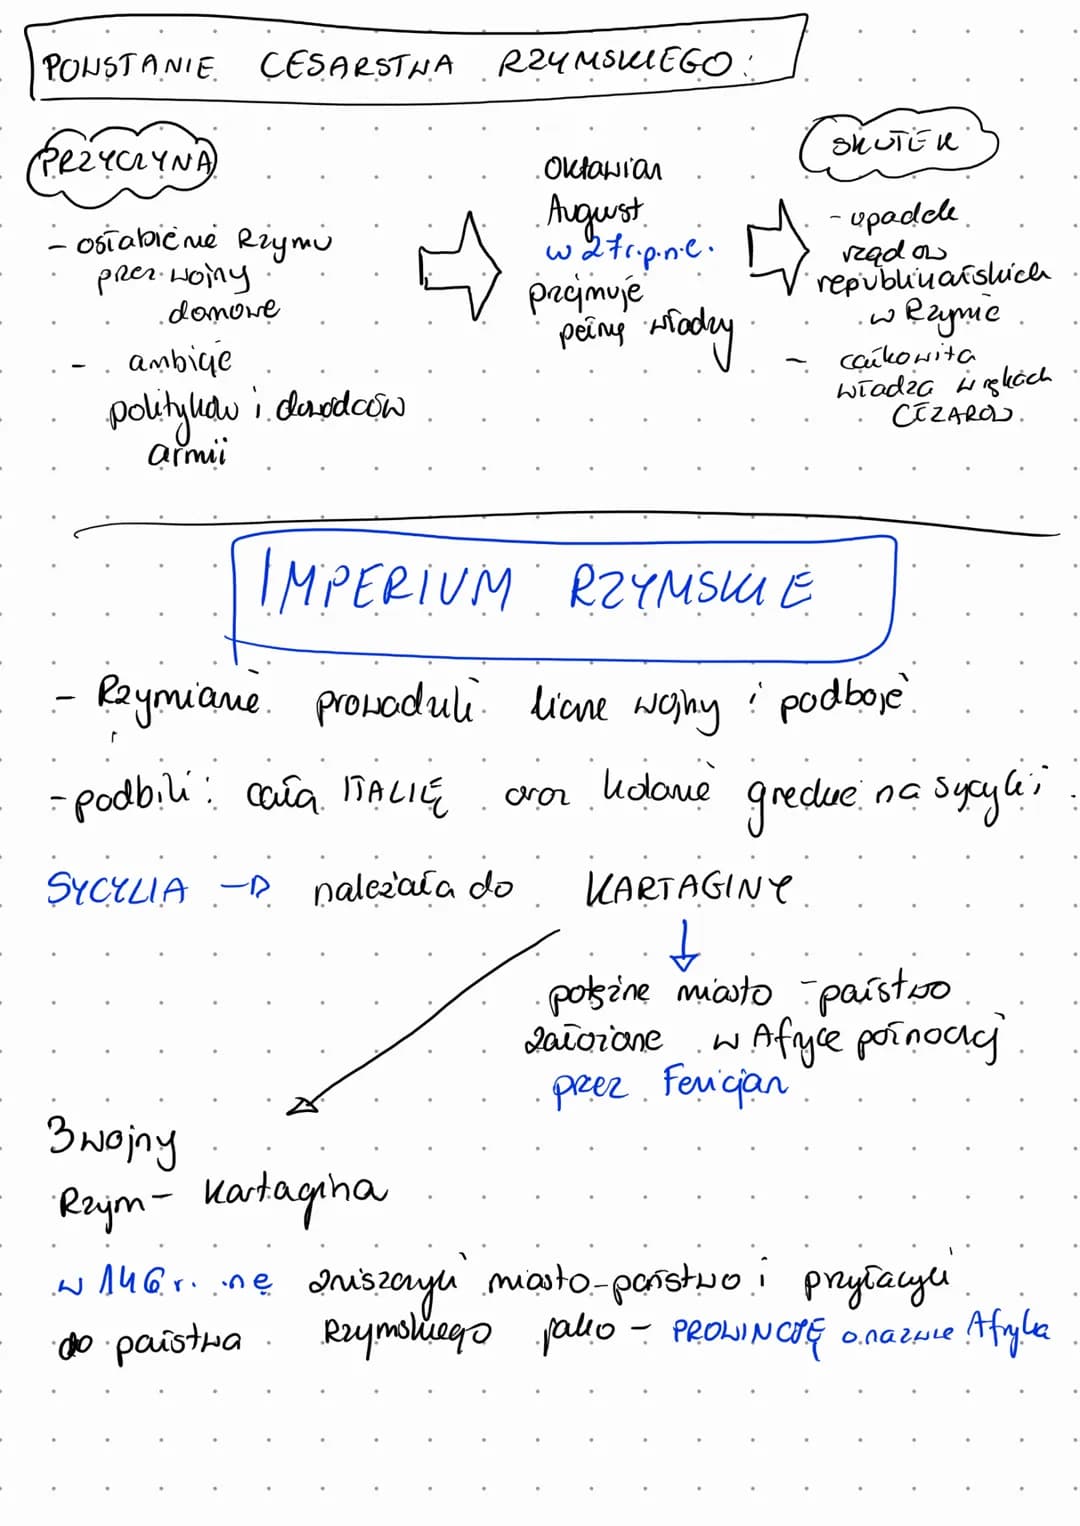 POWSTANIE CESARSTWA RZYMSKIEGO:
PRZYCZYNA
- osłabienie Rzymu
przez wojny
domowe
- ambicje
polityków i dowódców
armii
Oktawian
August
w 27 r.p.n.e.
przejmuje
pełnię władzy
SKUTEK
- upadek
rządów
republikańskich
w Rzymie
- całkowita
władza w rękach
CEZARÓW.
IMPERIUM RZYMSKIE
- Rzymianie prowadzili liczne wojny i podboje
- podbili: całą ITALIĘ oraz kolonie greckie na Sycylii
SYCYLIA → należała do KARTAGINY
↓
potężne miasto - państwo
założone w Afryce północnej
przez Fenicjan
3 wojny
Rzym - Kartagina
w 146 r. .ne zniszczyli miasto-państwo i przyłączyli
do państwa Rzymskiego jako - PROWINCJĘ o nazwie Afryka